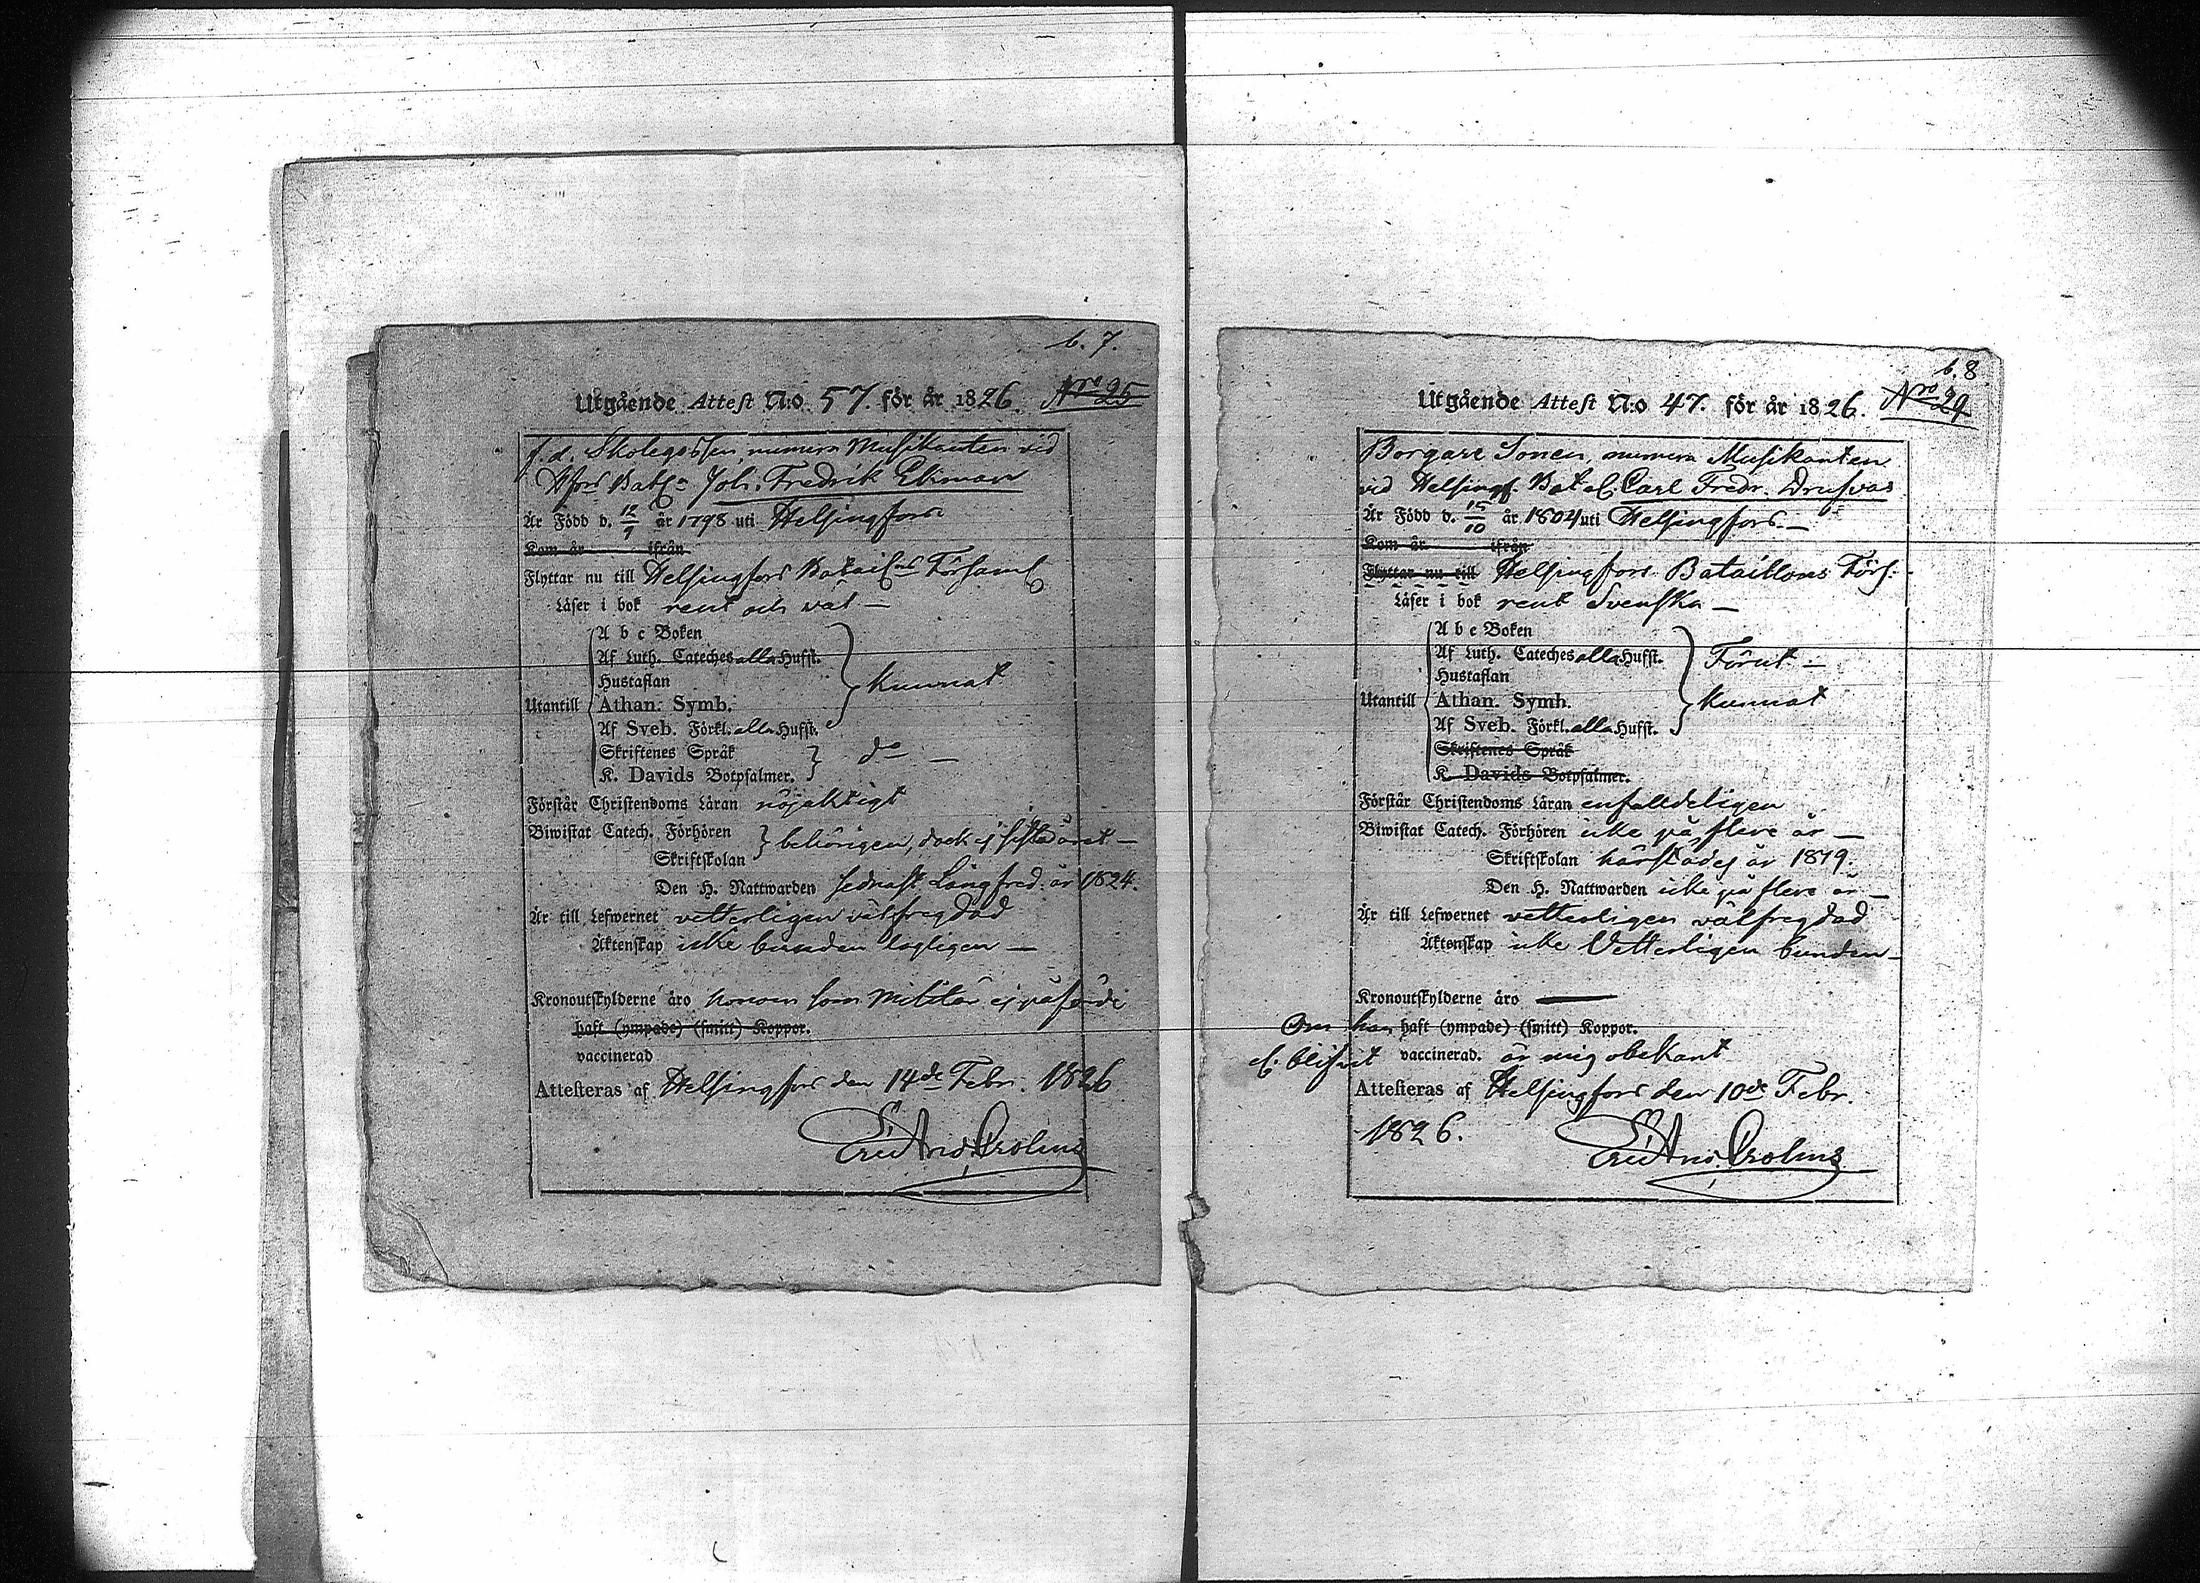 b. 7.
Utgående Attest N:o 57. för år 1826. Nro 25
f. d. Skolegossen, numera Musikanten vid
Hfors Batln Joh. Fredrik Ekman
Är Född d. 12/9 år 1798 uti Helsingfors
Kom år ifrån
Flyttar nu till Helsingfors Batail:ns Församl
Läser i bok rent och väl —
A b c Boken
Af Luth. Cateches alla Hufst.
Hustaflan
Kunnat
Utantill Athan. Symb.
Af Sveb. Förkl. alla Hufst.
Skriftenes Språk
do —
K. Davids Botpsalmer.
Förstår Christendoms Läran nöjaktigt
Biwistat Catech. Förhören behörigen, dock ej sista året —
Skriftskolan
Den H. Nattwarden sednast Långfred: år 1824.
Är till Lefwernet vetterligen välfregdad
Äktenskap icke bunden lagligen —
Kronoutskylderne äro honom som Militär ej påförde
haft (ympade) (smitt) Koppor.
vaccinerad
Attesteras af Helsingfors den 14de Febr. 1826
b. 8
Utgående Attest N:o 47. för år 1826. Nro 29
Borgare Sonen, numera Musikanten
vid Helsingf. Batal. Carl Fredr.
Är Född d. 15/10 år 1804 uti Helsingfors. —
Kom år ifrån
Flyttar nu till Helsingfors Bataillons Förs:
Läser i bok rent Svenska —
A b c Boken
Af Luth. Cateches alla Hufst.
Förut —
Hustaflan
Utantill Athan. Symb.
Kunnat
Af Sveb. Förkl. alla Hufst.
Skriftenes Språk
K. Davids Botpsalmer.
Förstår Christendoms Läran enfalldeligen
Biwistat Catech. Förhören icke på flere år —
Skriftskolan härstädes år 1819.
Den H. Nattwarden icke på flere år —
Är till Lefwernet vetterligen välfregdad
Äktenskap icke Vetterligen bunden —
Kronoutskylderne äro —
Om han haft (ympade) (smitt) Koppor.
el. blifvit vaccinerad. är mig obekant
Attesteras af Helsingfors den 10de Febr.
1826.